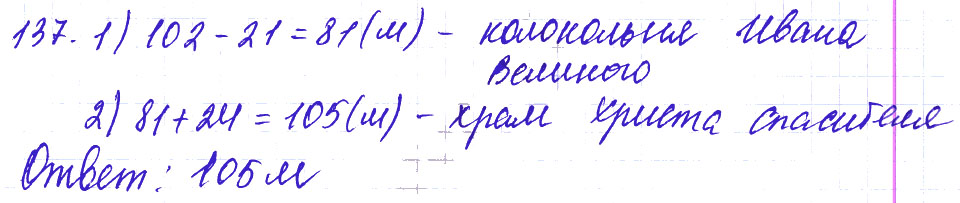 137. 1) 102 - 21 = 81 (м) - колокольня Ивана
Великого
2) 81 + 24 = 105 (м) - храм Христа спасителя
Ответ: 105 м